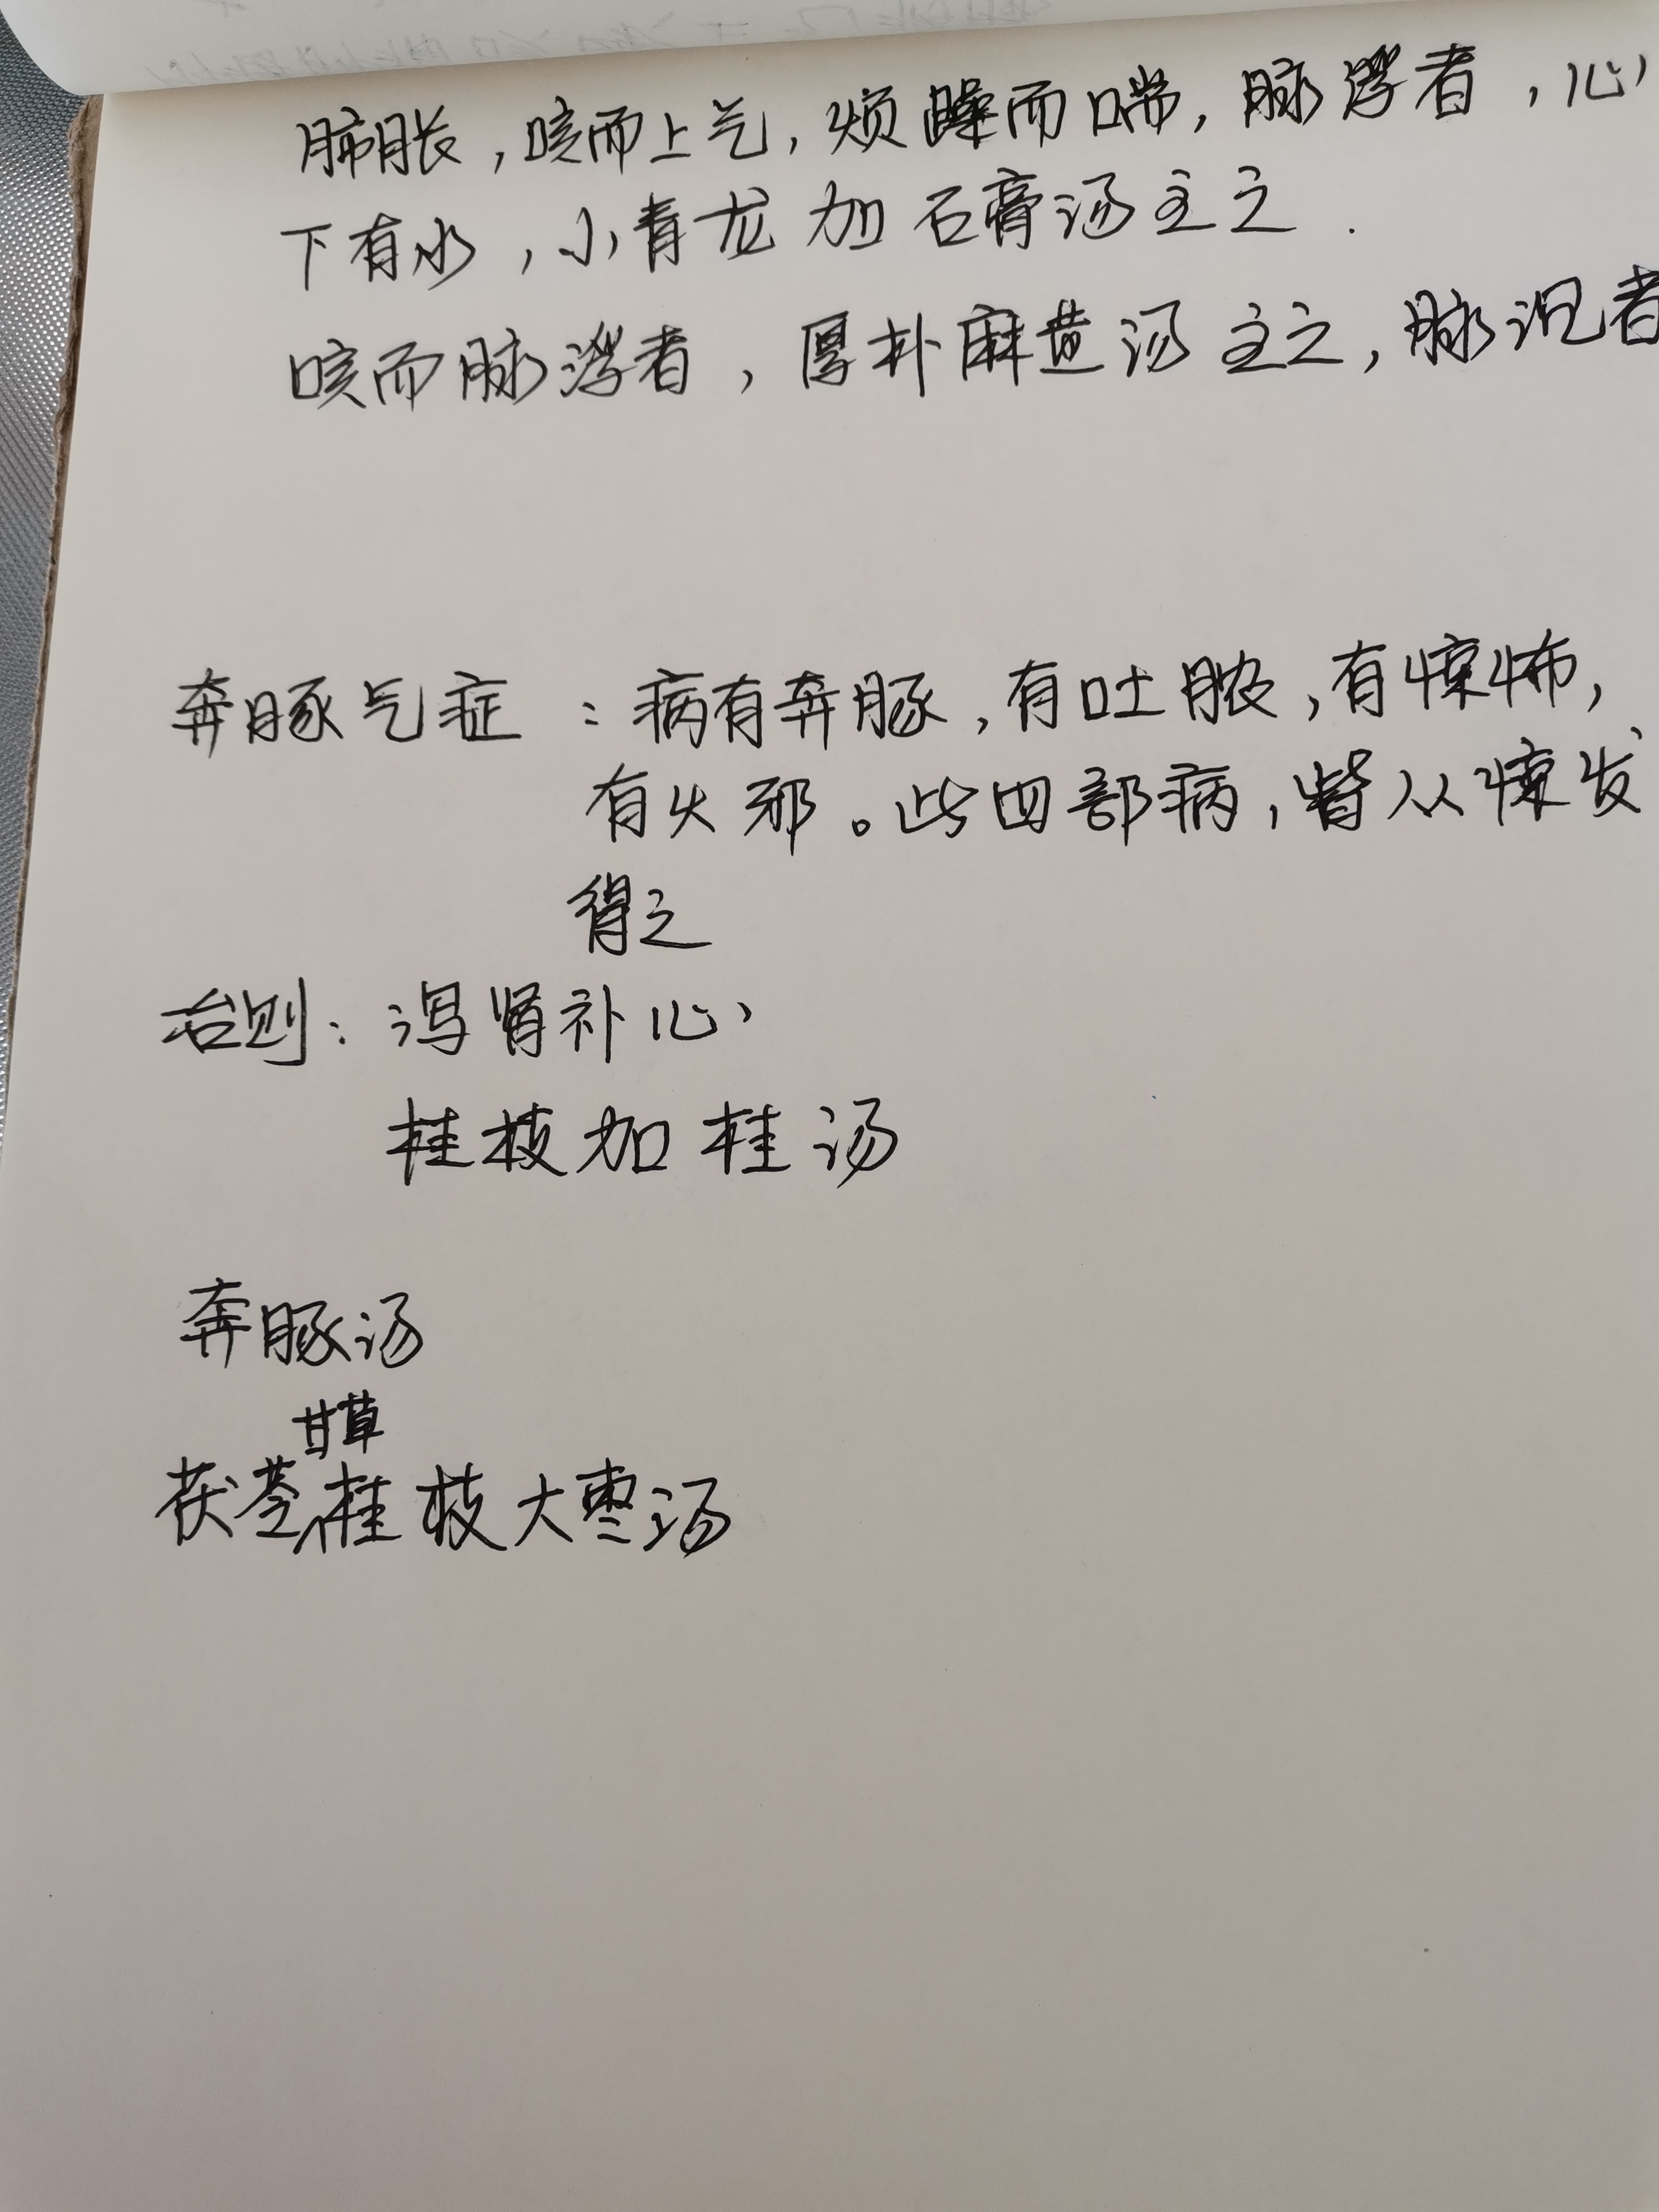 肺胀，咳而上气，烦躁而喘，脉浮者，心
下有水，小青龙加石膏汤主之．
咳而脉浮者，厚朴麻黄汤主之，脉沉者
奔豚气症：病有奔豚，有吐脓，有惊怖，
有火邪。此四部病，皆从惊发
得之
治则：泻肾补心
桂枝加桂汤
奔豚汤
甘草
茯苓桂枝大枣汤